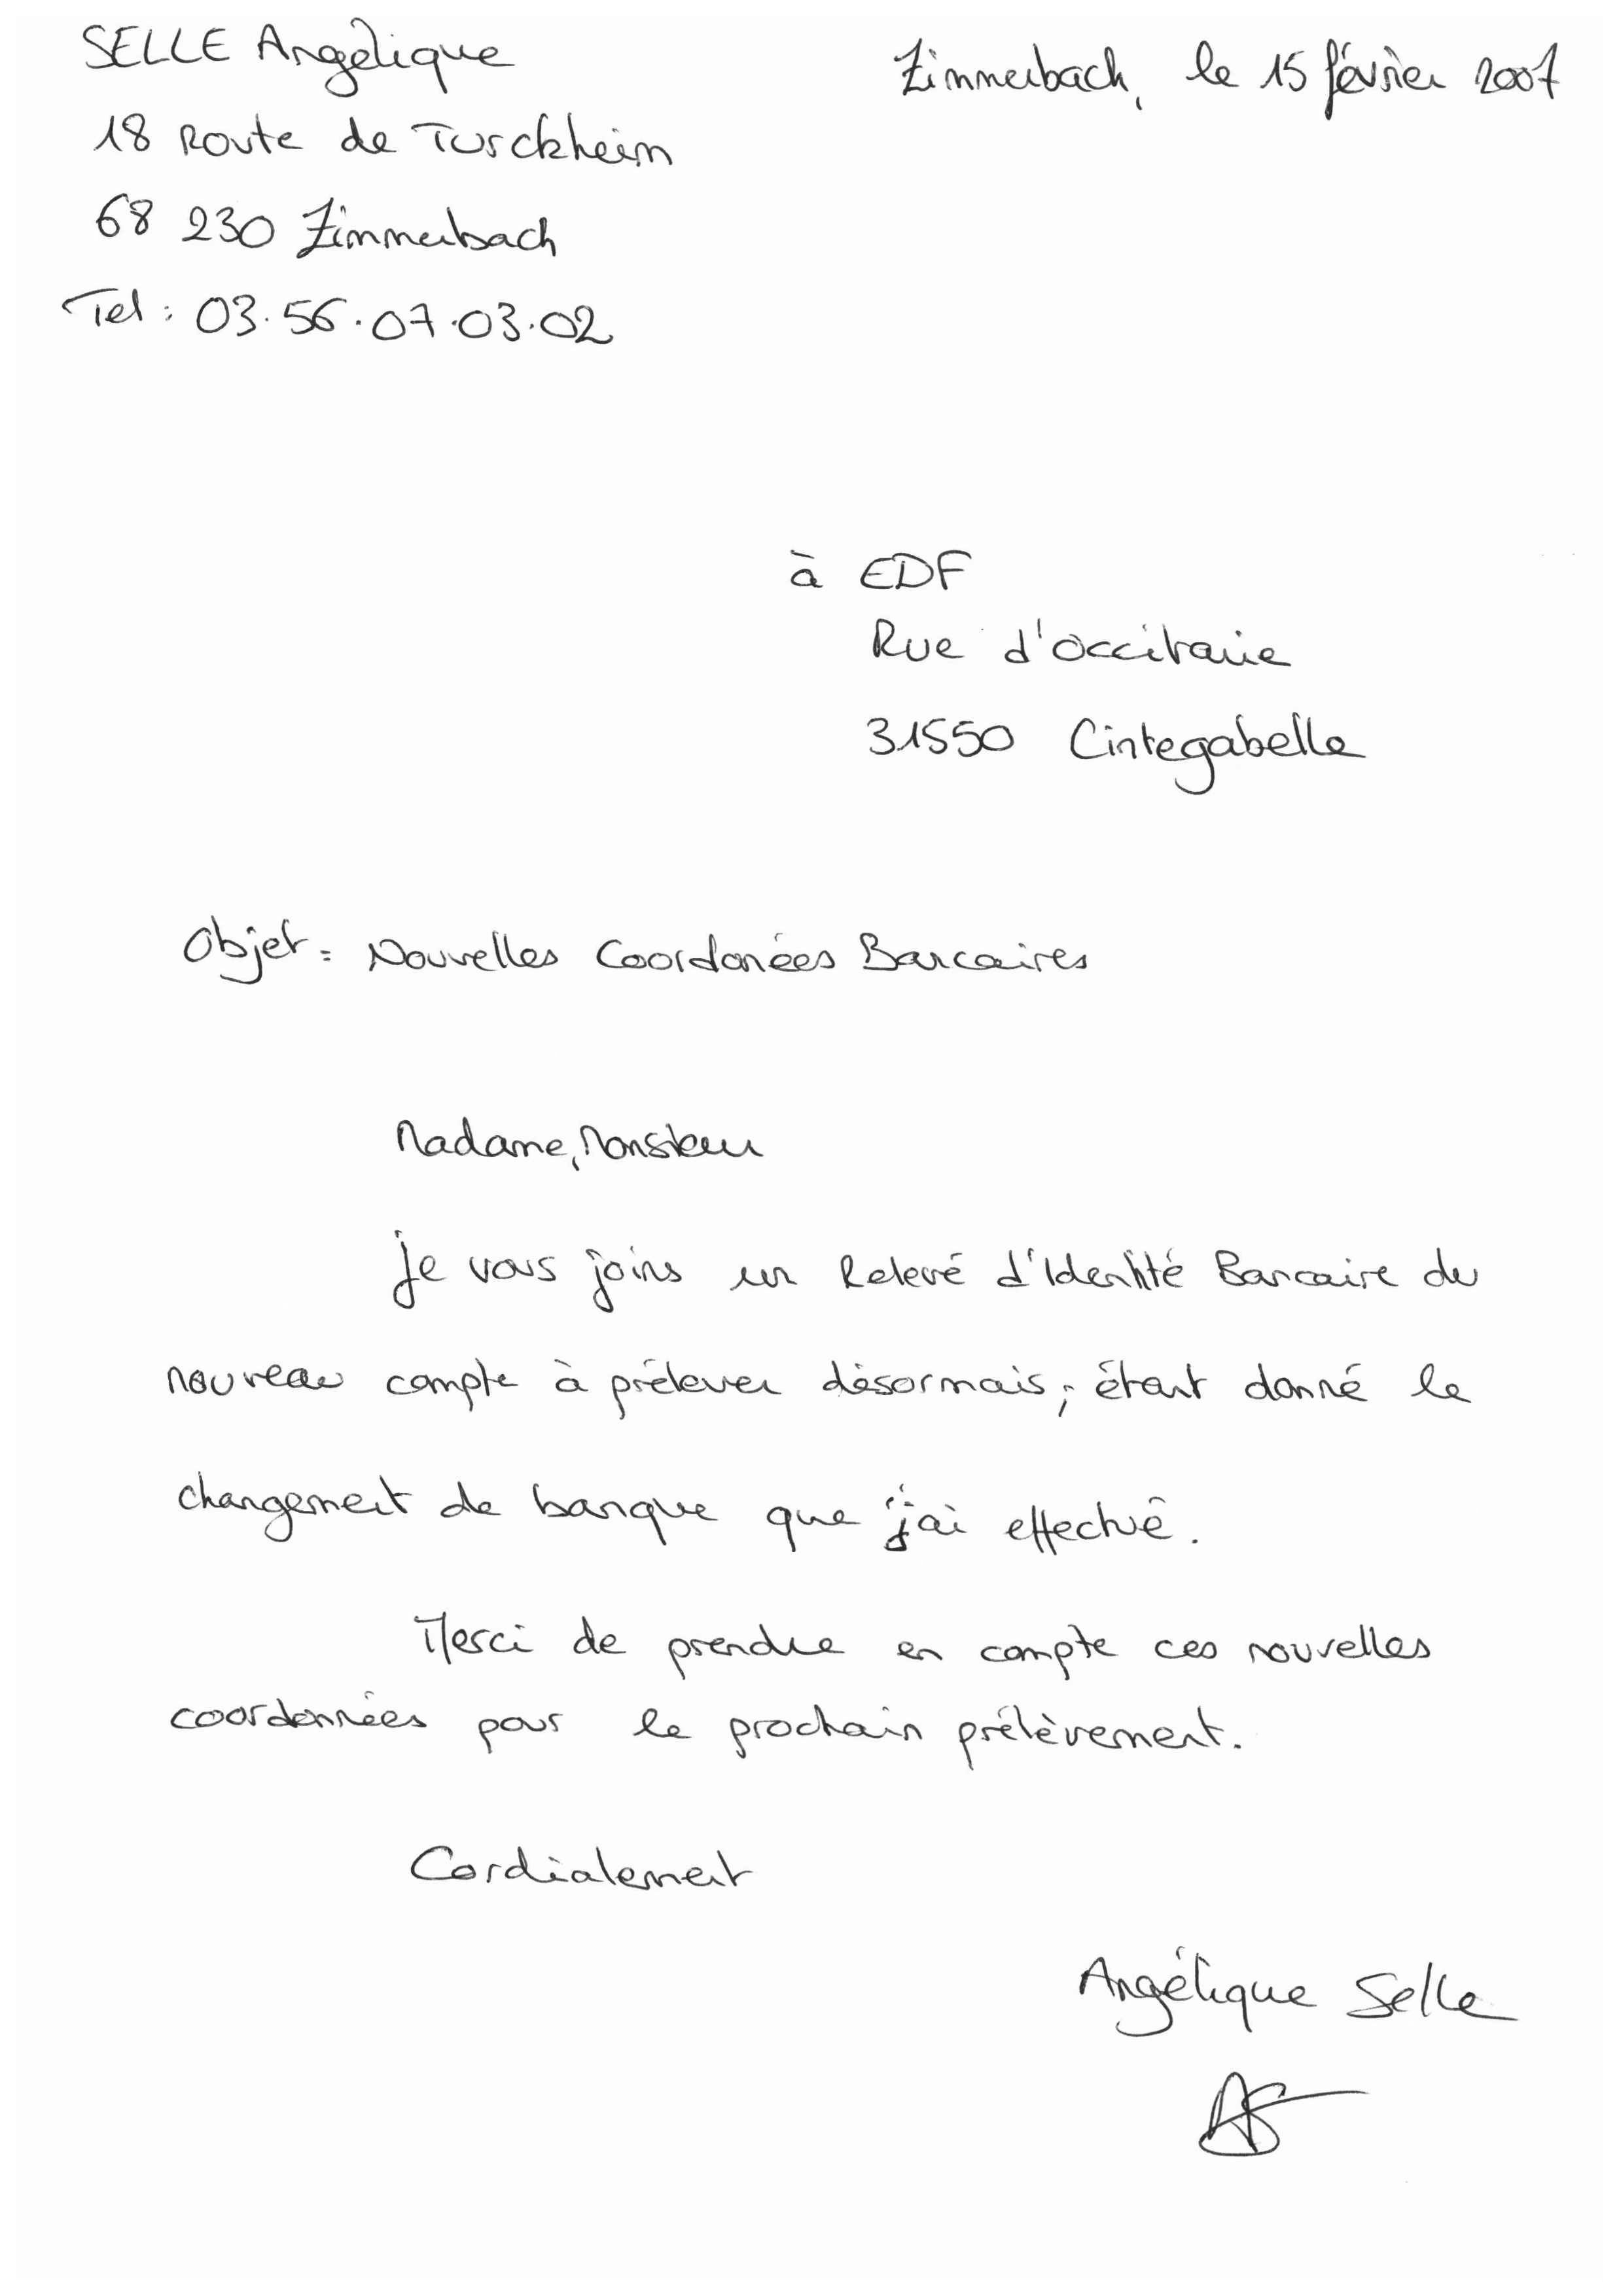 SELLE Angélique
Zimmerbach, le 15 février 2007
18 Route de Turckheim
68 230 Zimmerbach
Tel : 03.56.07.03.02
à EDF
Rue d'Occitanie
31550 Cintegabelle
Objet : Nouvelles Coordonées Bancaires
Madame, Monsieur
Je vous joins un Relevé d'Identité Bancaire du
nouveau compte à prélever désormais, étant donné le
changement de banque que j'ai effectué.
Merci de prendre en compte ces nouvelles
coordonnées pour le prochain prélèvement.
Cordialement
Angélique Selle
AS